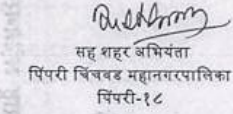 सह शहर अभियंता
पिंपरी चिंचवड महानगरपालिका
पिंपरी-१८